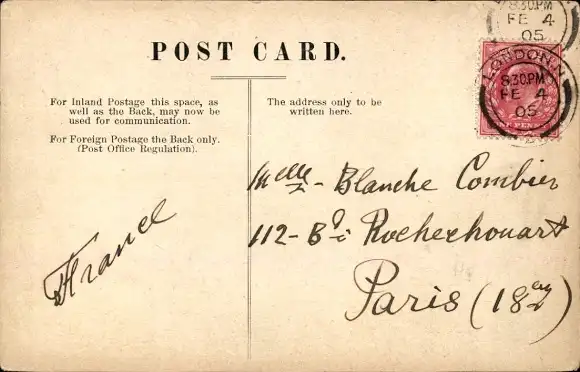 8.30.PM
FE 4
05
POST CARD.
LONDON.N
8.30.PM
FE 4
05
For Inland Postage this space, as
well as the Back, may now be
used for communication.
For Foreign Postage the Back only.
(Post Office Regulation).
The address only to be
written here.
Melle - Blanche Combier
112 - Bd Rochechouart
Paris (18e)
France